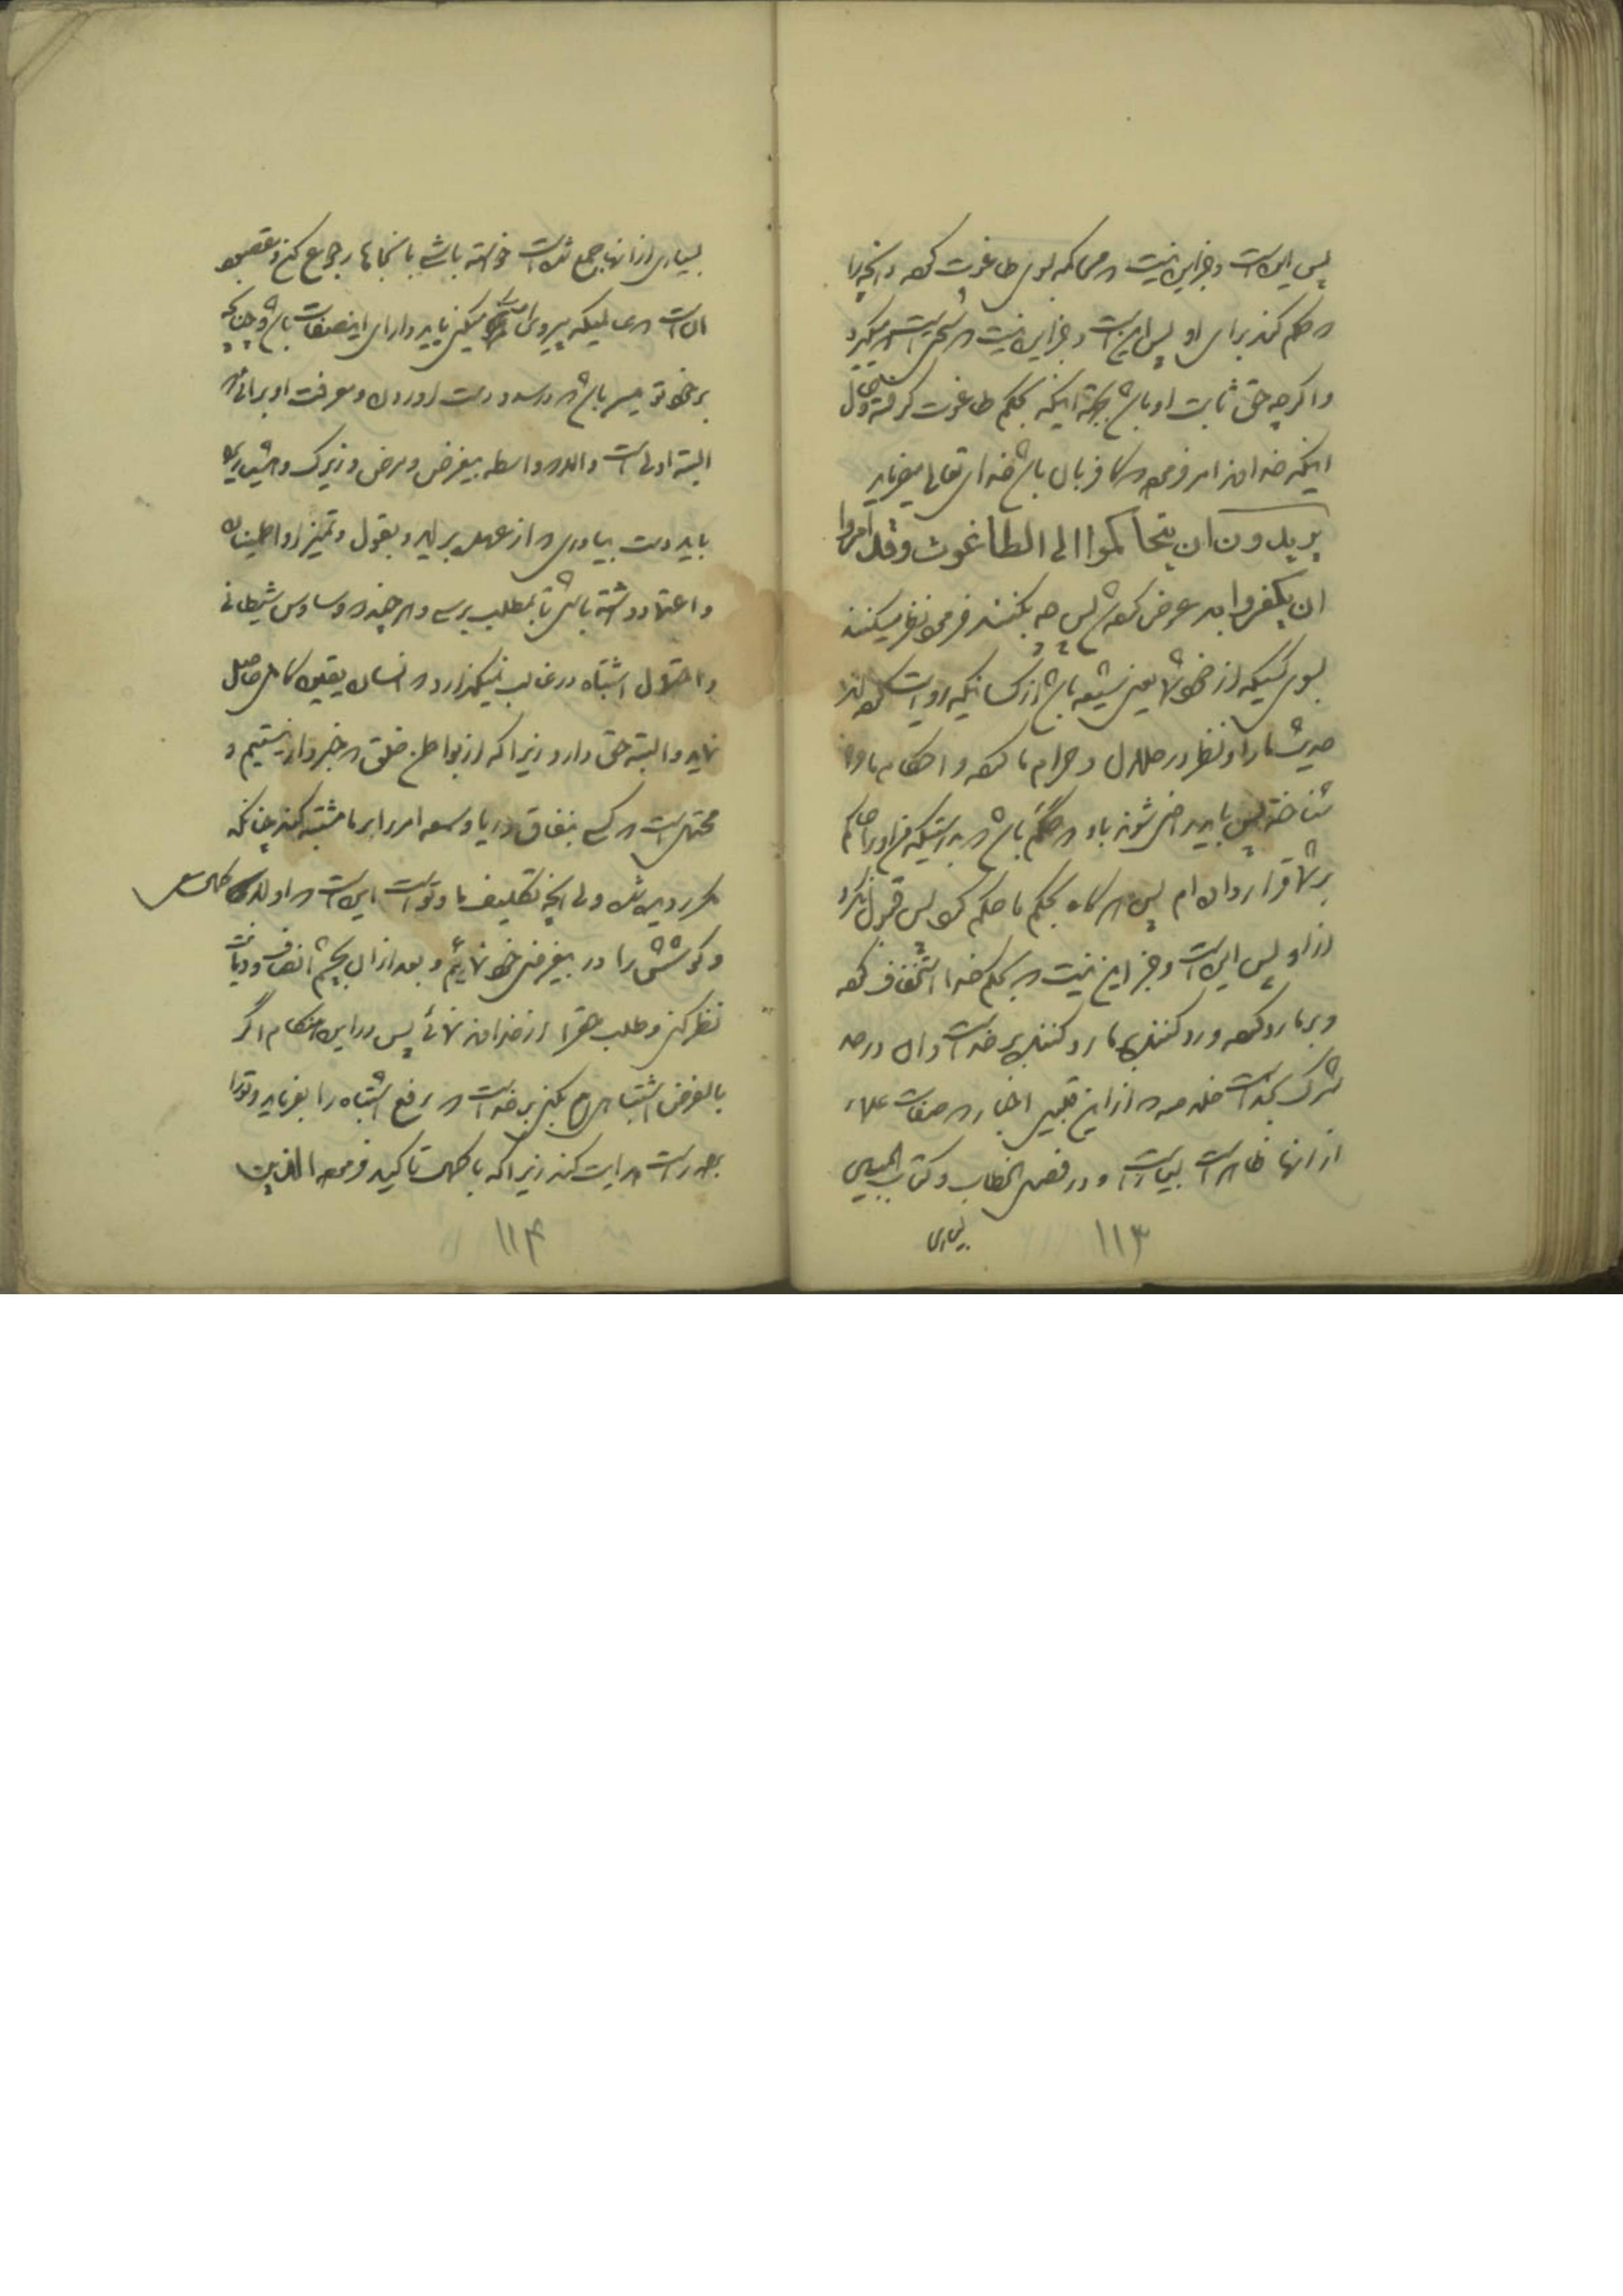 پس این است و جز این نیست که محاکمه بسوی طاغوت کرده و آنچه را
که حکم کند برای او پس این است و جز این نیست که سحت است که میگیرد
و اگرچه حق ثابت او باشد بجهة اینکه بحکم طاغوت گرفته و حال
اینکه خداوند امر فرموده که کافر بآن باشد خدای تعالی میفرماید
یریدون ان یتحاکموا الی الطاغوت وقد امروا
ان یکفروا به عرض کرد پس چه بکنند فرمود نظر میکنند
بسوی کسیکه از خود شما یعنی شیعه باشد از کسانیکه روایت کرده اند
حدیث ما را و نظر در حلال و حرام ما کرده و احکام ما را
شناخته پس باید راضی شوند باو که حکم باشد که بدرستیکه من او را حاکم
بر شما قرار داده ام پس هر گاه بحکم ما حکم کرد پس قبول نکرد
از او پس این است و جز این نیست که بحکم خدا استخفاف کرده
و بر ما رد کرده و رد کننده بر ما رد کننده بر خداست و آن در حد
شرک بخداست خلاصه که از این قبیل اخبار که صفات علماء
از آنها ظاهر است بسیار است و در فصل الخطاب و کتاب المبین
بسیاری
۱۱۳
بسیاری از آنها جمع شده است خواسته باشی بآنجاها رجوع کن و مقصود
آن است که عالمیکه پیروی او میکنی باید دارای این صفات باشد و چنانچه
بر خود تو میسر باشد که درصدد درست آوردن و معرفت او برائی که
البته اولی است و الا که واسطه بیغرض و مرض و زیرک و هشیاری
باید دست بیاوری که از عهده برآید و بقول و تمیز او اطمینان
و اعتماد داشته باشی تا بمطلب برسی و هر چند که وساوس شیطانی
و احتمال اشتباه در غالب نمیگذارد که انسان یقین کامل حاصل
نماید و البته حق دارد زیرا که از بواطن خلق که خبردار نیستیم و
محتمل است که کسی بنفاق و ریا و سمعه امر را بر ما مشتبه کند چنانکه
مکرر دیده شده ولی آنچه تکلیف ما و تو است این است که اولا کمال سعی
و کوشش را در بیغرضی خود نمائیم و بعد از آن بچشم انصاف و دیانت
نظر کنی و طلب حق را از خداوند نمائی پس در این هنگام اگر
بالفرض اشتباهی هم بکنی بر خداست که رفع اشتباه را بفرماید و تو را
براه راست هدایت کند زیرا که با کمال تاکید فرموده الذین
۱۱۴